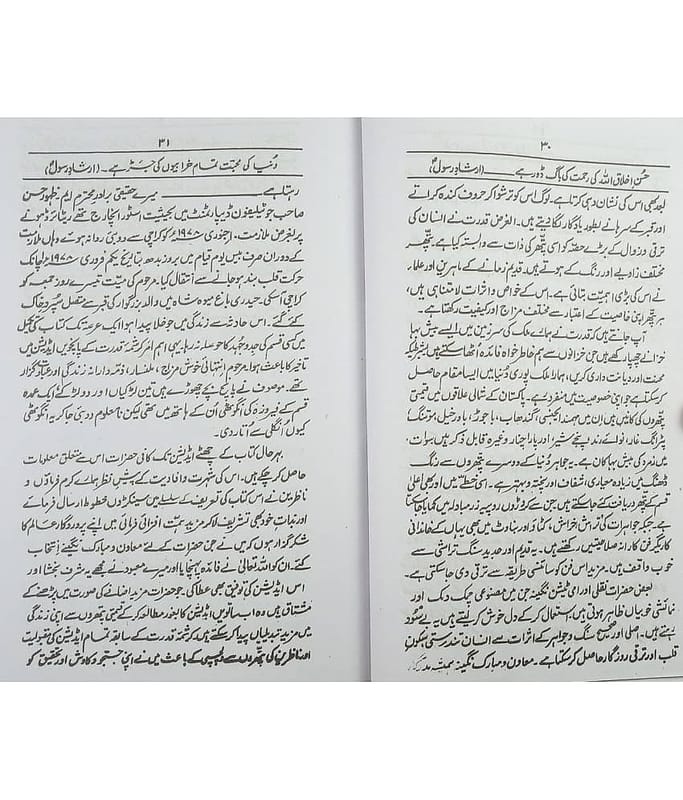 ۳۰
حسنِ اخلاق اللہ کی رحمت کی باگ ڈور ہے ــــــ (ارشادِ رسولؐ)
بعد بھی اس کی نشان دہی کرتا ہے۔ لوگ اس کو ترشوا کر حروف کندہ کراتے
اور قبر کے سرہانے بطور یادگار لگا دیتے ہیں۔ الغرض قدرت نے انسان کی
ترقی و زوال کے بڑے حصّہ کو اسی پتّھر کی ذات سے وابستہ کیا ہے۔ پتّھر
مختلف زاویے اور رنگ کے ہوتے ہیں۔ قدیم زمانے کے ماہرین اور علماء
نے اس کی بڑی اہمیّت بتائی ہے۔ اس کے خواص و اثرات لامتناہی ہیں،
ہر پتّھر اپنی خاصیت کے اعتبار سے مختلف مزاج اور کیفیت رکھتا ہے۔
آپ جانتے ہیں کہ قدرت نے ہمارے ملک کی سرزمین میں ایسے بیش بہا
خزانے چھپا رکھے ہیں جن خزانوں سے ہم خاطر خواہ فائدہ اٹھا سکتے ہیں بشرطیکہ
محنت اور دیانت داری کریں، ہمارا ملک پوری دُنیا میں ایسا مقام حاصل
کرسکتا ہے جو اپنی خصوصیت میں منفرد ہے۔ پاکستان کے شمالی علاقوں میں قیمتی
پتّھروں کی کانیں ہیں اِن میں مہمند ایجنسی، گندھاب، باجوڑ، باور خیل، موتنگ،
پڑانگ غار، نوائے ڈند، پنج شیر، اور بار اچنار وغیرہ قابل ذکر ہیں۔ سوات،
میں زمرّد کی بیش بہا کان ہے۔ یہ جواہر دُنیا کے دوسرے پتھروں سے رنگ
ڈھنگ میں زیادہ معیاری، شفاف اور پختہ و بہتر ہے۔ اسی خطّے میں اور بھی اعلٰی
قسم کے پتّھر دریافت کئے جا سکتے ہیں جن سے کروڑوں روپیہ زرِ مبادلہ میں کمایا جا سکتا
ہے۔ جبکہ جواہرات کی تراش خراش، کٹاؤ اور بناوٹ میں بھی یہاں کے خاندانی
کاریگر فن کارانہ صلاحیتیں رکھتے ہیں۔ یہ قدیم اور جدید سنگ تراشی سے
خوب واقف ہیں۔ مزید اس فن کو سائنسی طریقہ سے ترقی دی جا سکتی ہے۔
بعض حضرات نقلی اور امی ٹیشن نگینہ جن میں مصنوعی چمک دمک اور
نمائشی خوبیاں ظاہر ہوتی ہیں، استعمال کرکے دل خوش کر لیتے ہیں۔ یہ بے سُود
رہتے ہیں۔ اصلی اور صحیح سنگ و جواہر کے اثرات سے انسان تندرستی، سکونِ
قلب اور ترقی روزگار حاصل کرسکتا ہے۔ معاون و مبارک نگینہ ہمیشہ مددگار
۳۱
دُنیا کی محبّت تمام خرابیوں کی جڑ ہے۔ (ارشادِ رسولؐ)
رہتا ہے ــــــ میرے حقیقی برادرِ محترم ایم ظہور حسن
صاحب جو ٹیلیفون ڈیپارٹمنٹ میں بحیثیت اسٹور انچارج تھے ریٹائرڈ ہونے
پر بغرض ملازمت، جنوری ۱۹۷۸ء کو کراچی سے دوبئی روانہ ہوئے وہاں ملازمت
کے دوران صرف بیس یوم قیام میں بروز بدھ بتاریخ یکم فروری ۱۹۷۸ء اچانک
حرکت قلب بند ہو جانے سے انتقال کیا۔ مرحوم کی میّت تیسرے روز جمعہ کو
کراچی آسکی۔ حیدری باغ میوہ شاہ میں والد بزرگوار کی قبر سے متصل سپردِ خاک
کئے گئے۔ اس حادثہ سے زندگی میں جو خلا پیدا ہوا ایک عرصہ تک کتاب کی تکمیل
میں کسی قسم کی جدوجہد کا حوصلہ نہ رہا یہی امر کرشمۂ قدرت کے پانچویں ایڈیشن میں
تاخیر کا باعث ہوا۔ مرحوم انتہائی خوش مزاج، ملنسار، ذمّہ دارانہ زندگی اور عبادت گزار
تھے۔ موصوف نے پانچ بچّے چھوڑے ہیں تین لڑکیاں اور دو لڑکے ایک عمدہ
قسم کے فیروزہ کی انگوٹھی اُن کے ہاتھ میں تھی لیکن نامعلوم دوبئی جاکر یہ انگوٹھی
کیوں اُنگلی سے اُتار دی۔
بہر حال کتاب کے چھٹے ایڈیشن تک کافی حضرات اس سے متعلق معلومات
حاصل کر چکے ہیں۔ اس کی شہرت و افادیت کے پیشِ نظر ہمارے کرم فرماؤں و
ناظرین نے اس کتاب کی تعریف کے سلسلے میں سینکڑوں خطوط ارسال فرمائے
اور بذاتِ خود بھی تشریف لا کر مزید ہمّت افزائی فرمائی میں اپنے پروردگارِ عالم کا
شکر گزار ہوں کہ میں نے جن حضرات کے لئے معاون و مبارک نگینے اِنتخاب
کئے۔ ان کو اللہ تعالٰی نے فائدہ پہنچایا اور میرے معبود نے مجھے یہ شرف بخشا اور
اس ایڈیشن کی توفیق بھی عطا کی۔ جو حضرات مزید اضافی کی صورت میں پڑھنے کے
مشتاق ہیں وہ اب ساتویں ایڈیشن کا بغور مطالعہ کرکے قیمتی پتھروں سے اپنی زندگی
میں مزید تبدیلیاں پیدا کرسکتے ہیں کرشمۂ قدرت کے سابقہ تمام ایڈیشن کی مقبولیت
اور ناظرین کی پتّھروں سے دلچسپی کے باعث میں نے اپنی جستجو و کاوش اور تحقیق کو